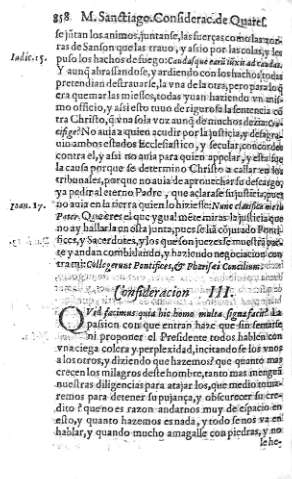 858 M. Sanctiago. Considerac. de Quares.
se jũtan los animos, juntanse, las fuerças como las zor-
ras de Sanson que las trauo, y asio por las colas, y les
Iudic. 15. puso los hachos de fuego: Caudasque earũ iũxit ad caudas.
Y aunq̃ abrassandose, y ardiendo con los hachos, todas
pretendian desirauarse, la vna de la otra, pero para lo q̃
era quemar las mieses, todas yuan haziendo vn mis-
mo officio, y assi esto tuuo de riguroso la sentencia cõ
tra Christo, q̃ vna sola voz aunq̃ de muchos dezia: Cru-
cifige? No auia a quien acudir por la justicia, y desagra-
uio ambos estados Ecclesiastico, y secular, concordes
contra el, y assi no auia para quien appelar, y esta fue
la causa porque se determino Christo a callar en los
tribunales, porque no auia de aprouechar su descargo,
ya pedir al eterno Padre, que aclarase su justicia, pues
Ioan. 17. no auia en la tierra quien lo hiziesse: Nunc clarifica me tu
Pater. Que eres el que ygualmẽte miras la justicia que
no ay hallarla en esta junta, pues se hã cõjurado Pontifi-
ces, y Sacerdotes, y los que son juezes se muestrã
te y andan combidando, y haziendo negociacion con
tra mi: Collegerunt Pontifices, & Pharisei Concilium.
Consideracion III.
QVid facimus quia hic homo multa signa facit? La
passion con que entran haze que sin sentarse,
ni proponer el Presidente todos hablen con
vna ciega colera y perplexidad, incitandose los vnos
a los otros, y diziendo que hazemos? que quanto mas
crecen los milagros deste hombre, tanto mas mengũa
nuestras diligencias para atajar los, que medio toma-
remos para detener su pujança, y obscurecer su cre-
dito? que no es razon andarnos muy de espacio en
esto, y quanto hazemos es nada, y todo se nos va en
hablar, y quando mucho amagalle con piedras, y no
le he-